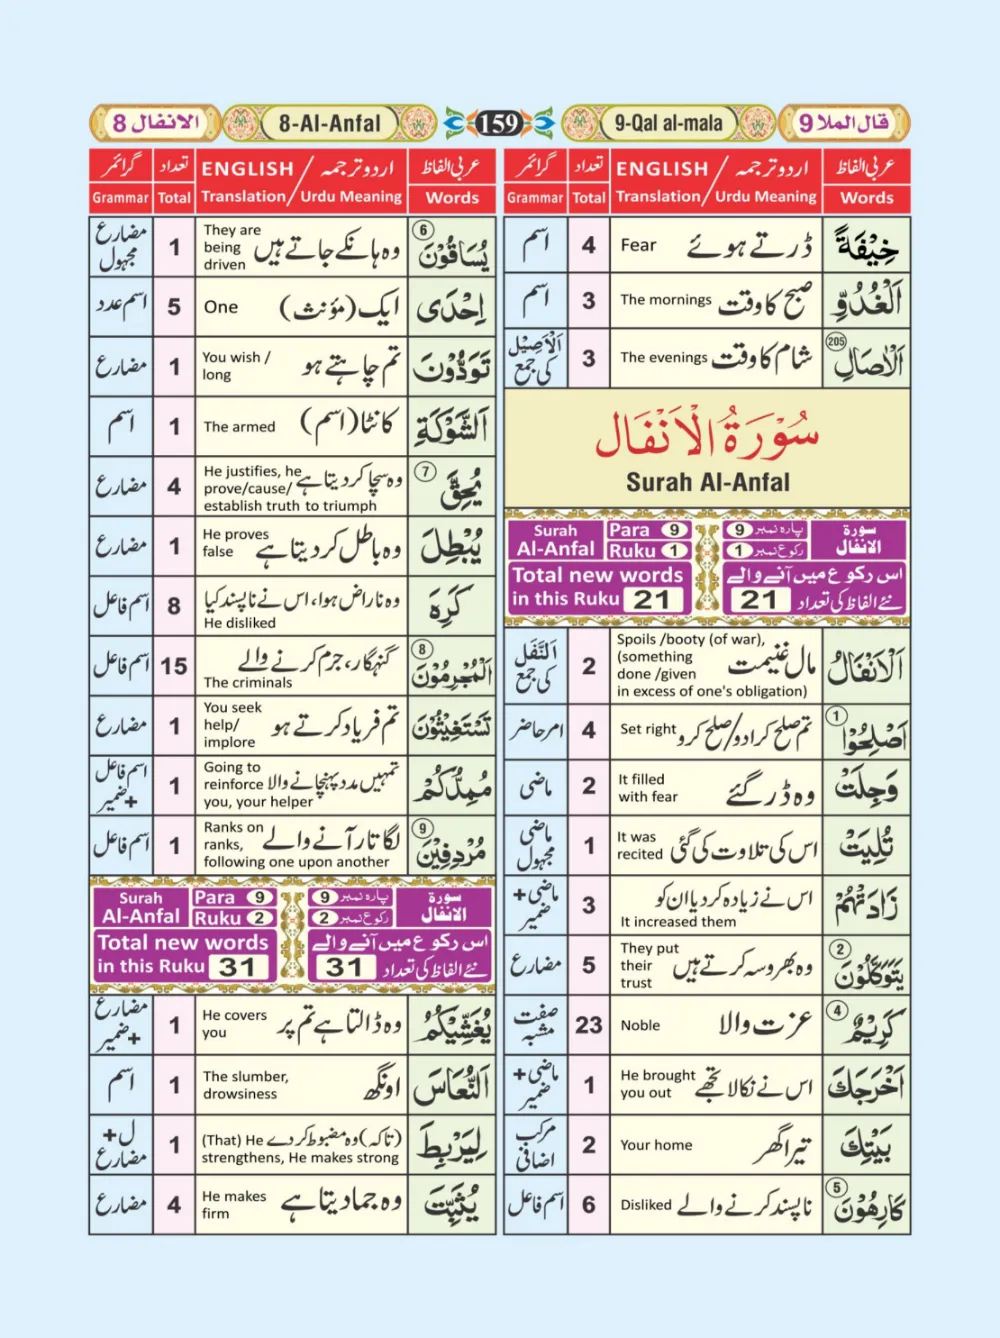 الانفال 8
8-Al-Anfal
159
9-Qal al-mala
قال الملا 9
عربی الفاظ اردو ترجمہ / ENGLISH تعداد گرائمر
Words Urdu Meaning / Translation Total Grammar
خِيْفَةً ڈرتے ہوئے Fear 4 اسم
اَلْغُدُوِّ صبح کا وقت The mornings 3 اسم
اَلْاٰصَالِ 205 شام کا وقت The evenings 3 اَلْاَصِيْل کی جمع
سُوْرَةُ الْاَنْفَال
Surah Al-Anfal
Surah Al-Anfal Para 9 پارہ نمبر 9 سورة الانفال
Ruku 1 رکوع نمبر 1
Total new words in this Ruku 21
اس رکوع میں آنے والے نئے الفاظ کی تعداد 21
اَلْاَنْفَالُ مال غنیمت Spoils /booty (of war), (something done /given in excess of one's obligation) 2 اَلنَّفَل کی جمع
اَصْلِحُوْا 1 تم صلح کرا دو/صلح کرو Set right 4 امر حاضر
وَجِلَتْ وہ ڈر گئے It filled with fear 2 ماضی
تُلِيَتْ اس کی تلاوت کی گئی It was recited 1 ماضی مجہول
زَادَتْهُمْ اس نے زیادہ کر دیا ان کو It increased them 3 ماضی + ضمیر
يَتَوَكَّلُوْنَ 2 وہ بھروسہ کرتے ہیں They put their trust 5 مضارع
كَرِيْمٌ 4 عزت والا Noble 23 صفت مشبہ
اَخْرَجَكَ اس نے نکالا تجھے He brought you out 1 ماضی + ضمیر
بَيْتِكَ تیرا گھر Your home 2 مرکب اضافی
كَارِهُوْنَ 5 ناپسند کرنے والے Disliked 6 اسم فاعل
عربی الفاظ اردو ترجمہ / ENGLISH تعداد گرائمر
Words Urdu Meaning / Translation Total Grammar
يُسَاقُوْنَ 6 وہ ہانکے جاتے ہیں They are being driven 1 مضارع مجہول
اِحْدَى ایک (مؤنث) One 5 اسم عدد
تَوَدُّوْنَ تم چاہتے ہو You wish / long 1 مضارع
اَلشَّوْكَةِ کانٹا (اسم) The armed 1 اسم
يُحِقَّ 7 وہ سچا کر دیتا ہے He justifies, he prove/cause/ establish truth to triumph 4 مضارع
يُبْطِلَ وہ باطل کر دیتا ہے He proves false 1 مضارع
كَرِهَ وہ ناراض ہوا، اس نے ناپسند کیا He disliked 8 اسم فاعل
اَلْمُجْرِمُوْنَ 8 گنہگار، جرم کرنے والے The criminals 15 اسم فاعل
تَسْتَغِيْثُوْنَ تم فریاد کرتے ہو You seek help/ implore 1 مضارع
مُمِدُّكُمْ تمہیں مدد پہنچانے والا Going to reinforce you, your helper 1 اسم فاعل + ضمیر
مُرْدِفِيْنَ 9 لگاتار آنے والے Ranks on ranks, following one upon another 1 اسم فاعل
Surah Al-Anfal Para 9 پارہ نمبر 9 سورة الانفال
Ruku 2 رکوع نمبر 2
Total new words in this Ruku 31
اس رکوع میں آنے والے نئے الفاظ کی تعداد 31
يُغَشِّيْكُمُ وہ ڈالتا ہے تم پر He covers you 1 مضارع + ضمیر
اَلنُّعَاسَ اونگھ The slumber, drowsiness 1 اسم
لِيَرْبِطَ (تاکہ) وہ مضبوط کر دے (That) He strengthens, He makes strong 1 ل + مضارع
يُثَبِّتَ وہ جما دیتا ہے He makes firm 4 مضارع